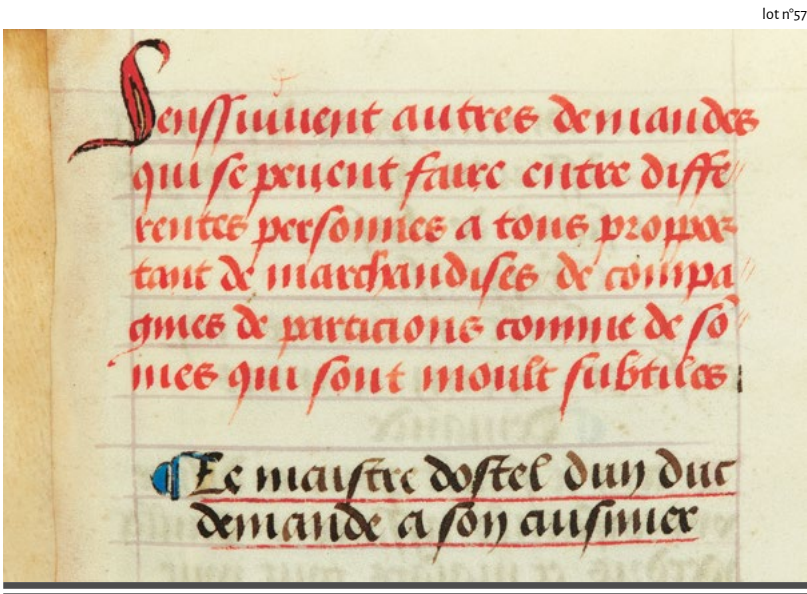 lot n°57
Senssuiuent autres demandes
qui se peuent faire entre diffe
rentes personnes a tous propos
tant de marchandises de compa
gnies de particions comme de sõ
mes qui sont moult subtiles
¶ Le maistre dostel dun duc
demande a son cuisinier